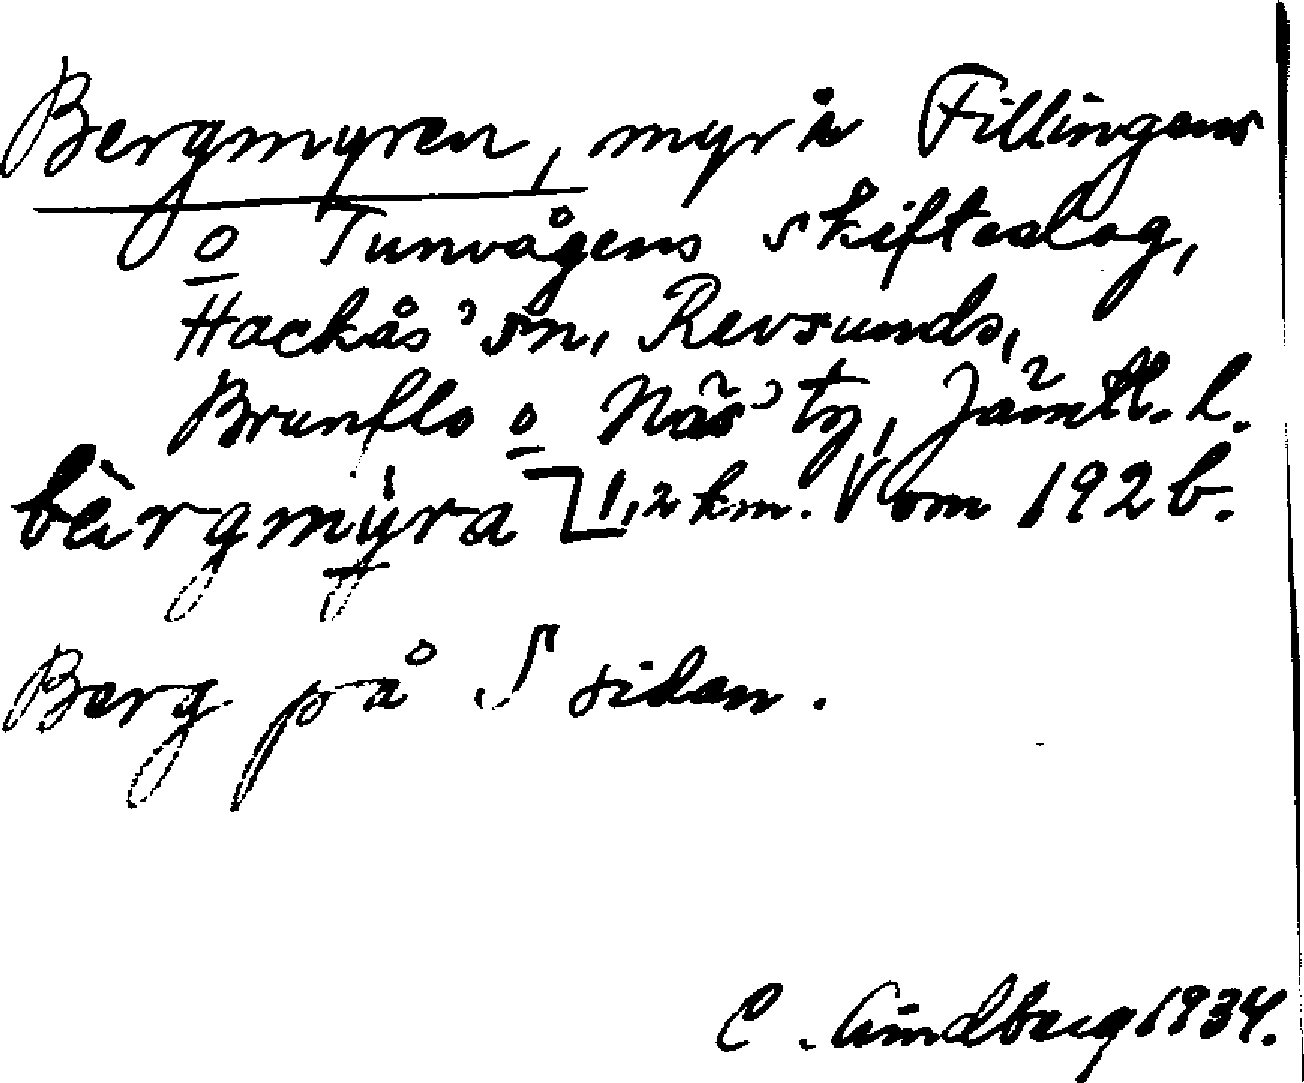 Bergmyren, myr i Fillingens
o Tunvågens skifteslag,
Hackås' sn, Revsunds,
Brunflo o Näs' tg, Jämtl. l.
bärgmýra 1,2 km. V om 192 b.
Berg på S sidan.
C. Lindberg 1934.